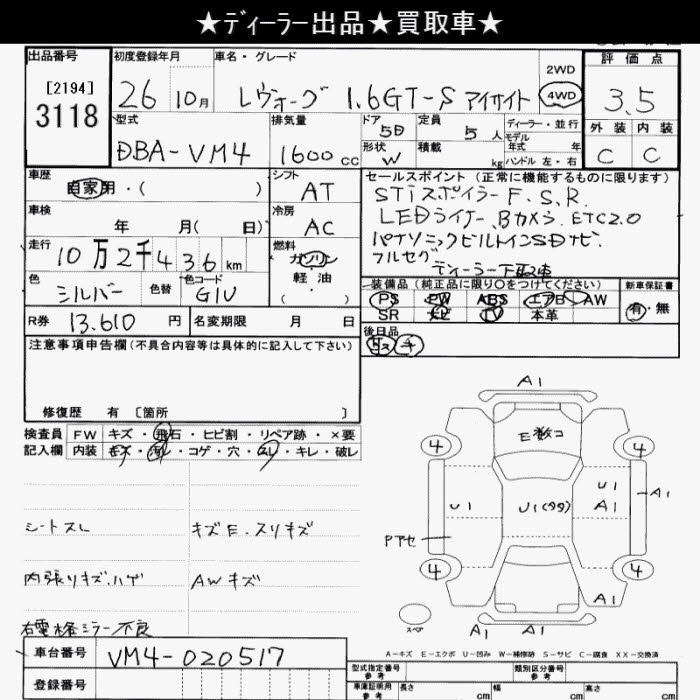 ★ディーラー出品★買取車★
出品番号 初度登録年月 車名・グレード 評価点
[2194]
3118
26 10月 レヴォーグ 1.6GT-S アイサイト 2WD 4WD 3.5
型式 排気量 ドア 5D 定員 5人 ディーラー・並行 外装 内装
モデル年式 年
DBA-VM4 1600cc 形状 W 積載 kg ハンドル 左・右 C C
車歴 シフト セールスポイント (正常に機能するものに限ります)
自家用・( ) AT STiスポイラーF.S.R.
車検 冷房 LEDライナー、Bカメラ、ETC2.0
年 月( 日) AC パナソニックビルトインSDナビ、
走行 燃料 フルセグ
10万2千436km ガソリン ディーラー下取車
色 色替 色コード 軽油・( ) 装備品 (純正品に限り○をつけてください) 新車保証書
シルバー G1U PS PW ABS エアB AW 有・無
SR ナビ TV 本革
R券 13.610円 名変期限 月 日 後日品
トス 千
注意事項申告欄(不具合内容等は具体的に記入して下さい)
修復歴 有 [箇所 ]
検査員 FW キズ・飛石・ヒビ割・リペア跡・×要
記入欄 内装 キズ・汚レ・コゲ・穴・スレ・キレ・破レ
シートスレ キズE.スリキズ
内張りキズ.ハゲ AWキズ
右電格ミラー不良
A1
E数コ
4 4
U1 U1(99) U1 A1 A1
Pアセ
4 4
スペア A1 A1
A-キズ E-エクボ U-凹み W-補修跡 S-サビ C-腐食 XX-交換済
車台番号 VM4-020517
型式指定番号 参考 類別区分番号 参考
登録番号 車庫証明用 参考 長さ cm 幅 cm 高さ cm